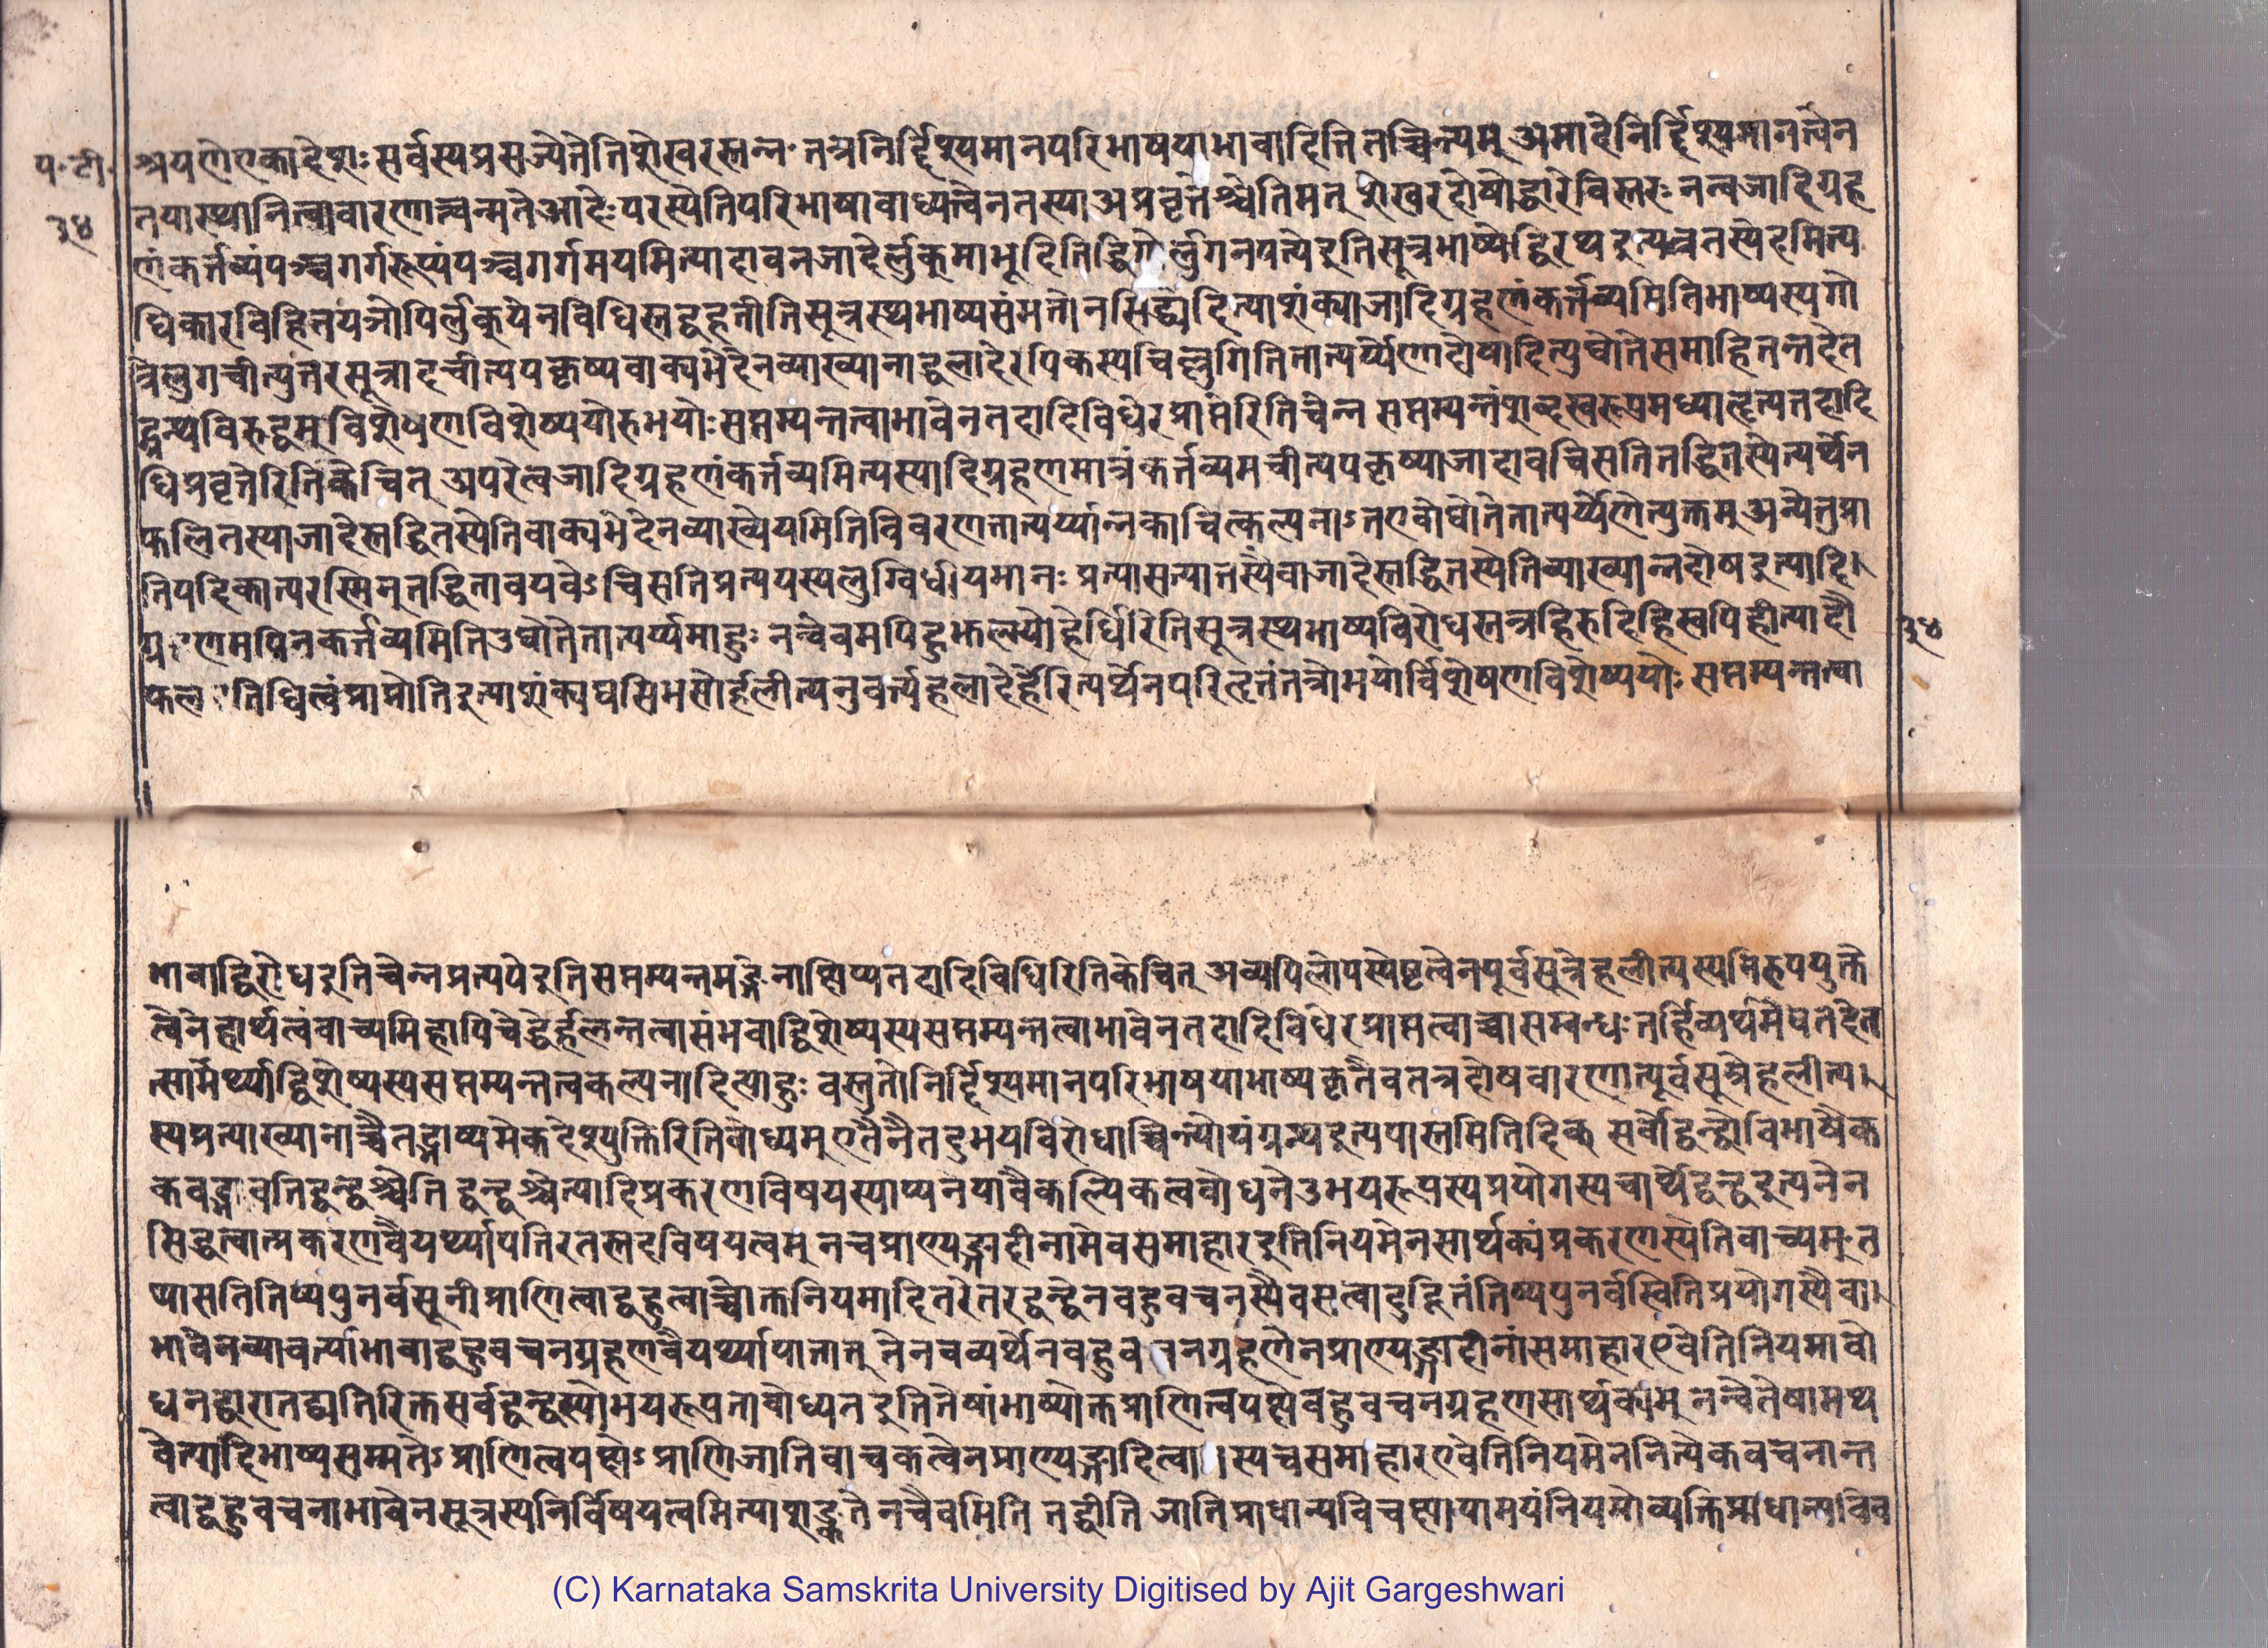 प॰टी॰
३४
श्रयणेएकादेशः सर्वस्यप्रसज्येतेतिशेखरस्तन्न॰ तन्त्रनिर्द्दिश्यमानपरिभाषयाभावादितितच्चिन्त्यम् अमादेनिर्द्दिश्यमानत्वेन
तयास्थानित्वावारणात्त्वन्मतेआदेःपरस्येतिपरिभाषाबाध्यत्वेनतस्याअप्रवृत्तेश्चेतिमत् शेखरदोषोद्धारेविस्तरः नन्वजादिग्रह
णंकर्त्तव्यंपञ्चगर्गरूप्यंपञ्चगर्गमयमित्यादावनजादेर्लुक्माभूदितिद्विगोर्लुगनपत्येइतिसूत्रभाष्येद्विरथइत्यत्रतस्येदमित्य
धिकारविहितयञोपिर्लुक्येनविधिस्तद्वहतीतिसूत्रस्थभाष्यसंमतोनसिद्ध्येदित्याशंक्याजादिग्रहणंकर्त्तव्यमितिभाष्यस्यगो
त्रेलुगचीत्युत्तरसूत्रादचीत्यपकृष्यवाक्यभेदेनव्याख्यानाद्धलादेरपिकस्यचिल्लुगितितात्पर्य्येणादोषादित्युद्योतेसमाहितन्तदेत
द्ग्रन्थविरुद्धम् विशेषणविशेष्ययोरुभयोःसप्तम्यन्तत्वाभावेनतदादिविधेरप्राप्तेरितिचेन्न सप्तम्यन्तंशब्दस्वरूपमध्याहृत्यतदादि
धिप्रवृत्तेरितिकेचित् अपरेत्वजादिग्रहणंकर्त्तव्यमित्यस्यादिग्रहणमात्रंकर्त्तव्यमचीत्यपकृष्याजादावचिसतितद्धितस्येत्यर्थेन
फलितस्याजादेस्तद्धितस्येतिवाक्यभेदेनव्याख्येयमितिविवरणतात्पर्य्यान्नकाचित्कल्पनाऽतएवोद्योतेतात्पर्य्येणेत्युक्तम् अन्येतुप्रा
तिपदिकात्परस्मिन्तद्धितावयवेऽचिसतिप्रत्ययस्यलुग्विधीयमानः प्रत्यासत्यातस्यैवाजादेस्तद्धितस्येतिव्याख्यान्नदोषइत्यादि।
ग्र॰णमपिनकर्त्तव्यमितिउद्योतेतात्पर्य्यमाहुः नन्वेवमपिहुझल्भ्योहेर्धिरितिसूत्रस्थभाष्यविरोधस्तत्रहिरुदिहिस्वपिहीत्यादौ
फल॰तिधित्वंप्राप्नोतिइत्याशंक्यघसिभसोर्हलीत्यनुवर्त्यहलादेर्हेरित्यर्थेनपरिहृतंतत्रोभयोर्विशेषणविशेष्ययोः सप्तम्यन्तत्वा
३४
भावाद्विरोधइतिचेन्नप्रत्ययेइतिसप्तम्यन्तमङ्गेनाक्षिप्यतदादिविधिरितिकेचित् अव्यपिलोपस्येष्टत्वेनपूर्वसूत्रेहलीत्यस्य
त्वेनेहार्थत्वंवाच्यमिहापिचेद्धेर्हलन्तत्वासंभवाद्विशेष्यस्यसप्तम्यन्तत्वाभावेनतदादिविधेरप्राप्तत्वाच्चासम्बन्धः तर्हिव्यर्थमेषतदेत
त्सामर्थ्याद्विशेष्यस्यसप्तम्यन्तत्वकल्पनादित्याहुः वस्तुतोनिर्द्दिश्यमानपरिभाषयाभाष्यकृतैवतत्रदोषवारणात्पूर्वसूत्रेहलीत्य।
स्यप्रत्याख्यानाच्चैतद्भाष्यमेकदेश्युक्तिरितिबोध्यम् एतेनैतदुभयविरोधाच्चिन्त्योयंग्रन्थइत्यपास्तमितिदिक् सर्वोद्वन्द्वोविभाषैक
कवद्भावतिद्वन्द्वश्चेति द्वन्द्वश्चेत्यादिप्रकरणविषयस्याप्यनेयावैकल्पिकत्वबोधनेउभयरूपस्यप्रयोगस्यचार्थेद्वन्द्वइत्यनेन
सिद्धत्वात्प्रकरणवैयर्थ्यापत्तिरतस्तदविषयत्वम् नचप्राण्यङ्गादीनामेवसमाहारइतिनियमेनसार्थक्यंप्रकरणस्येतिवाच्यम् त
थासतितिष्यपुनर्वसूनीप्राणित्वाद्बहुत्वाच्चोक्तनियमादितरेतरद्वन्द्वेनबहुवचनस्यैवसत्वादुदितंतिष्यपुनर्वस्वितिप्रयोगस्यैवा।
भावेनव्यावर्त्याभावाद्बहुवचनग्रहणवैयर्थ्यापातात् तेनचव्यर्थेनबहुव॰नग्रहणेनप्राण्यङ्गादीनांसमाहारएवेतिनियमाबो
धनद्वारातद्व्यतिरिक्तसर्वद्वन्द्वस्योभयरूपताबोध्यत इतितेषांभाष्योक्तप्राणित्वपक्षेबहुवचनग्रहणसार्थक्यम् नन्वेतेषामथ
वेत्यादिभाष्यसम्मतेऽप्राणित्वपक्षेऽप्राणिजातिवाचकत्वेनप्राण्यङ्गादित्वा॰स्यचसमाहारएवेतिनियमेननित्यैकवचनान्त
त्वाद्बहुवचनाभावेनसूत्रस्यनिर्विषयत्वमित्याशङ्कतेनचैवमिति तद्धीति जातिप्राधान्यविवक्षायामयंनियमोव्यक्तिप्राधान्यविव
(C) Karnataka Samskrita University Digitised by Ajit Gargeshwari